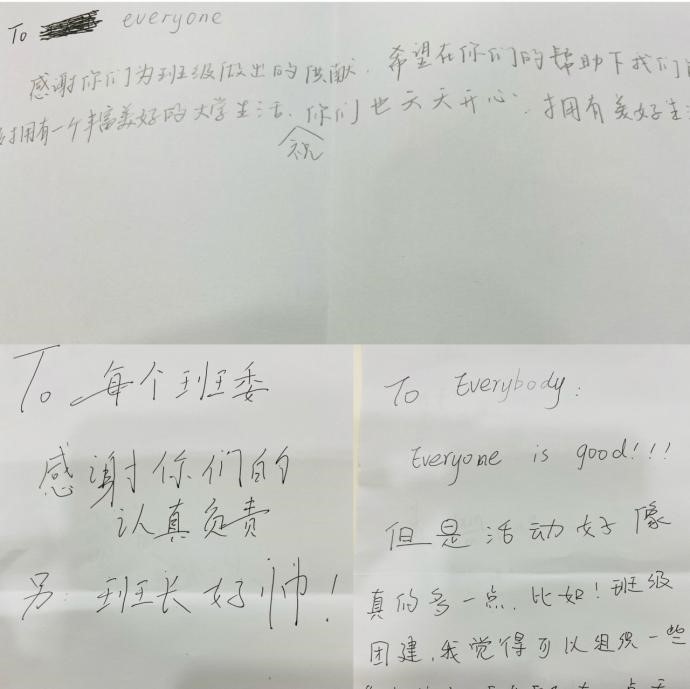 To everyone
感谢你们为班级做出的供献，希望在你们的帮助下我们
拥有一个丰富美好的大学生活，祝你们也天天开心，拥有美好生
To 每个班委
感谢你们的
认真负责
另：班长好帅！
To Everybody：
Everyone is good!!!
但是活动好像
真的多一点，比如！班级
团建，我觉得可以组织一些